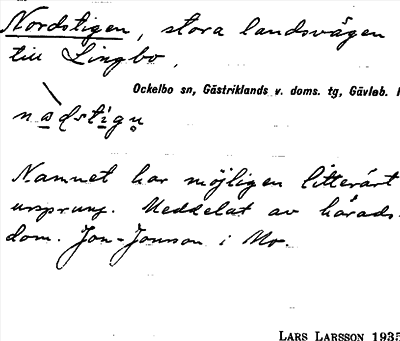 Nordstigen, stora landsvägen
till Lingbo,
Ockelbo sn, Gästriklands v. doms. tg, Gävleb. l
Namnet har möjligen litterärt
ursprung. Meddelat av härads-
dom. Jon-Jonson i Mo.
LARS LARSSON 1935